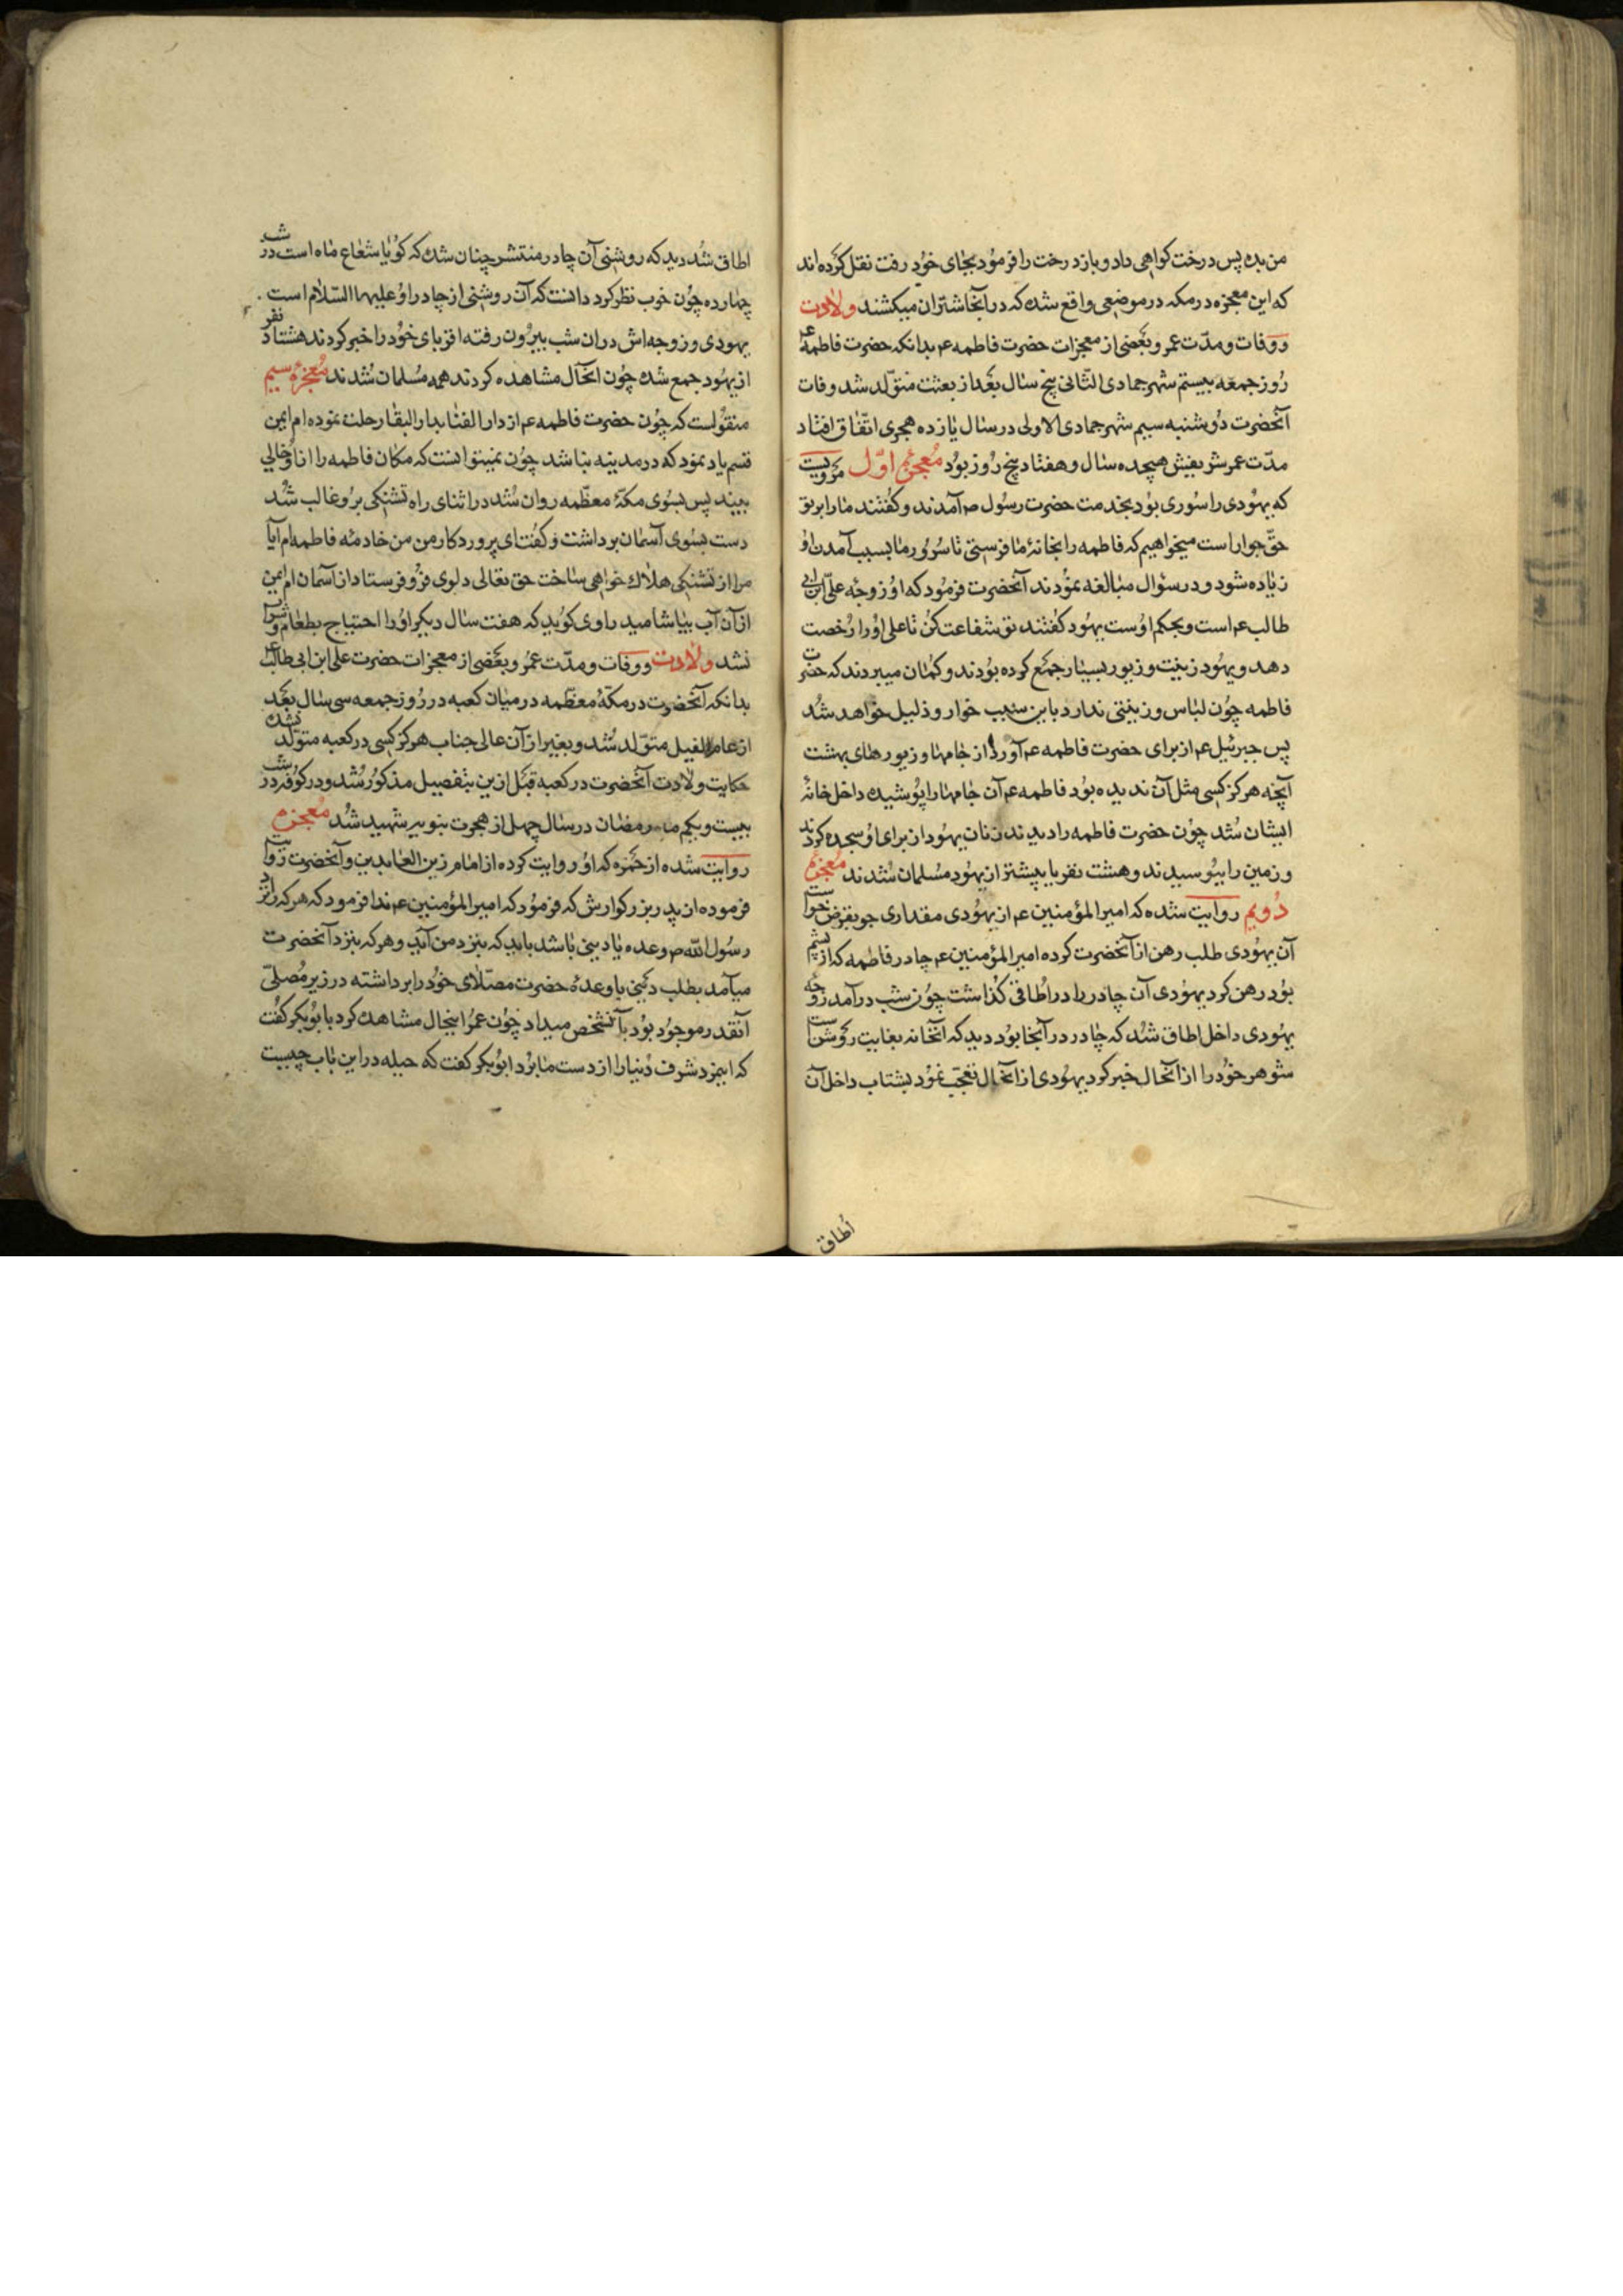 من بده پس درخت کواهی داد و باز درخت را فرمود بجای خود رفت نقل کرده اند
که این معجزه در مکه در موضعی واقع شده که در آنجا شتران میکشند ولادت
ووفات ومدّت عمر و بعضی از معجزات حضرت فاطمه عم بدانکه حضرت فاطمه عم
روز جمعه بیستم شهر جمادی الثانی پنج سال بعد از بعثت متولّد شد وفات
آنحضرت دوشنبه سیم شهر جمادی الاولی در سال یازده هجری اتّفاق افتاد
مدّت عمر شریفش هیچده سال و هفتاد پنج روز بود معجزهٔ اوّل مرویست
که یهودی را سوری بود بخدمت حضرت رسول ص آمدند و کفتند ما را بر تو
حقّ جوار است میخواهیم که فاطمه را بخانهٔ ما فرستی تا سرور ما بسبب آمدن او
زیاده شود و در سؤال مبالغه نمودند آنحضرت فرمود که او زوجهٔ علیّ ابن ابی
طالب عم است و بحکم اوست یهود کفتند تو شفاعت کن تا علی او را رخصت
دهد و یهود زینت و زیور بسیار جمع کرده بودند و کمان میبردند که حضرت
فاطمه چون لباس و زینتی ندارد باین سبب خوار و ذلیل خواهد شد
پس جبرئیل عم از برای حضرت فاطمه عم آورد از جامها و زیورهای بهشت
آنچه هرکز کسی مثل آن ندیده بود فاطمه عم آن جامها را پوشیده داخل خانهٔ
ایشان شد چون حضرت فاطمه را دیدند زنان یهود از برای او سجده کردند
و زمین را بوسیدند و هشت نفر یا پیشتر از یهود مسلمان شدند معجزهٔ
دویم روایت شده که امیر المؤمنین عم از یهودی مقداری جو بقرض خواست
آن یهودی طلب رهن از آنحضرت کرده امیر المؤمنین عم چادر فاطمه که از پشم
بود رهن کرد یهودی آن چادر را در اطاقی کذاشت چون شب درآمد زوجه
یهودی داخل اطاق شد که چادر در آنجا بود دید که آنخانه بغایت روشن است
شوهر خود را از آنحال خبر کرد یهودی از آنحال تعجّب نمود بشتاب داخل آن
اطاق
اطاق شد دید که روشنی آن چادر منتشر چنان شده که کویا شعاع ماه است در شب
چهارده چون خوب نظر کرد دانست که آن روشنی از چادر او علیها السّلام است
یهودی و زوجه اش در ان شب بیرون رفته اقربای خود را خبر کردند هشتاد نفر
از یهود جمع شده چون آنحال مشاهده کردند همه مسلمان شدند معجزهٔ سیم
منقولست که چون حضرت فاطمه عم از دار الفنا بدار البقا رحلت نموده ام ایمن
قسم یاد نمود که در مدینه نباشد چون نمیتوانست که مکان فاطمه را از او خالی
بیند پس بسوی مکّهٔ معظّمه روان شد در اثنای راه تشنکی برو غالب شد
دست بسوی آسمان برداشت و کفت ای پروردکار من من خادمهٔ فاطمه ام آیا
مرا از تشنکی هلاک خواهی ساخت حق تعالی دلوی فرو فرستاد از آسمان ام ایمن
از آن آب بیاشامید راوی کوید که هفت سال دیکر او را احتیاج بطعام و شراب
نشد ولادت ووفات ومدّت عمر و بعضی از معجزات حضرت علی ابن ابی طالب عم
بدانکه آنحضرت در مکّهٔ معظّمه در میان کعبه در روز جمعه سی سال بعد
از عام الفیل متولّد شد و بغیر از آن عالی جناب هرکز کسی در کعبه متولّد نشده
حکایت ولادت آنحضرت در کعبه قبل ازین بتفصیل مذکور شد و در کوفه در شب
بیست و یکم ماه رمضان در سال چهل از هجرت نبویه شهید شد معجزه
روایت شده از حمزه که او روایت کرده از امام زین العابدین و آنحضرت روایت
فرموده از پدر بزرکوارش که فرمود که امیر المؤمنین عم ندا فرمود که هر که را نزد
رسول الله ص وعده یا دینی باشد باید که بنزد من آید و هر که بنزد آنحضرت
میآمد بطلب دینی یا وعدهٔ حضرت مصلّای خود را برداشته در زیر مصلّی
آنقدر موجود بود بآنشخص میداد چون عمر اینحال مشاهده کرد بابوبکر کفت
که اینمرد شرف دنیا را از دست ما برد ابوبکر کفت که حیله در این باب چیست